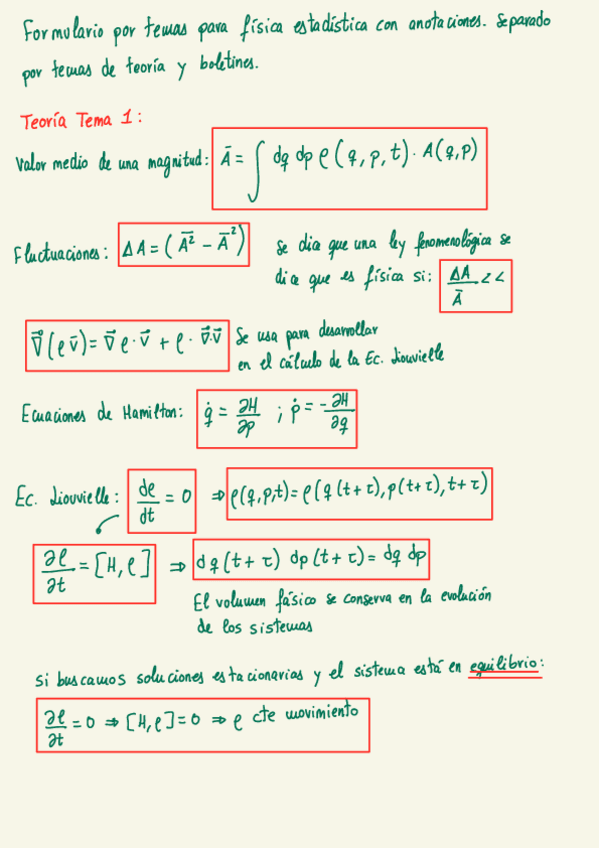 Formulario por temas para física estadística con anotaciones. Separado
por temas de teoría y boletines.
Teoría Tema 1:
Valor medio de una magnitud: Ā = ∫ dq dp ρ(q, p, t) · A(q,p)
Fluctuaciones: ΔA = (\overline{A²} − Ā²)
Se dice que una ley fenomenológica se
dice que es física si: ΔA/Ā <<
∇⃗(ρv̄) = ∇⃗ρ · v⃗ + ρ · ∇⃗·v⃗
Se usa para desarrollar
en el cálculo de la Ec. Liouvielle
Ecuaciones de Hamilton: q̇ = ∂H/∂p ; ṗ = −∂H/∂q
Ec. Liouvielle: dρ/dt = 0 ⇒ ρ(q,p,t) = ρ(q(t+τ), p(t+τ), t+τ)
∂ρ/∂t = [H, ρ] ⇒ dq(t+τ) dp(t+τ) = dq dp
El volumen fásico se conserva en la evolución
de los sistemas
Si buscamos soluciones estacionarias y el sistema está en equilibrio:
∂ρ/∂t = 0 ⇒ [H, ρ] = 0 ⇒ ρ cte movimiento